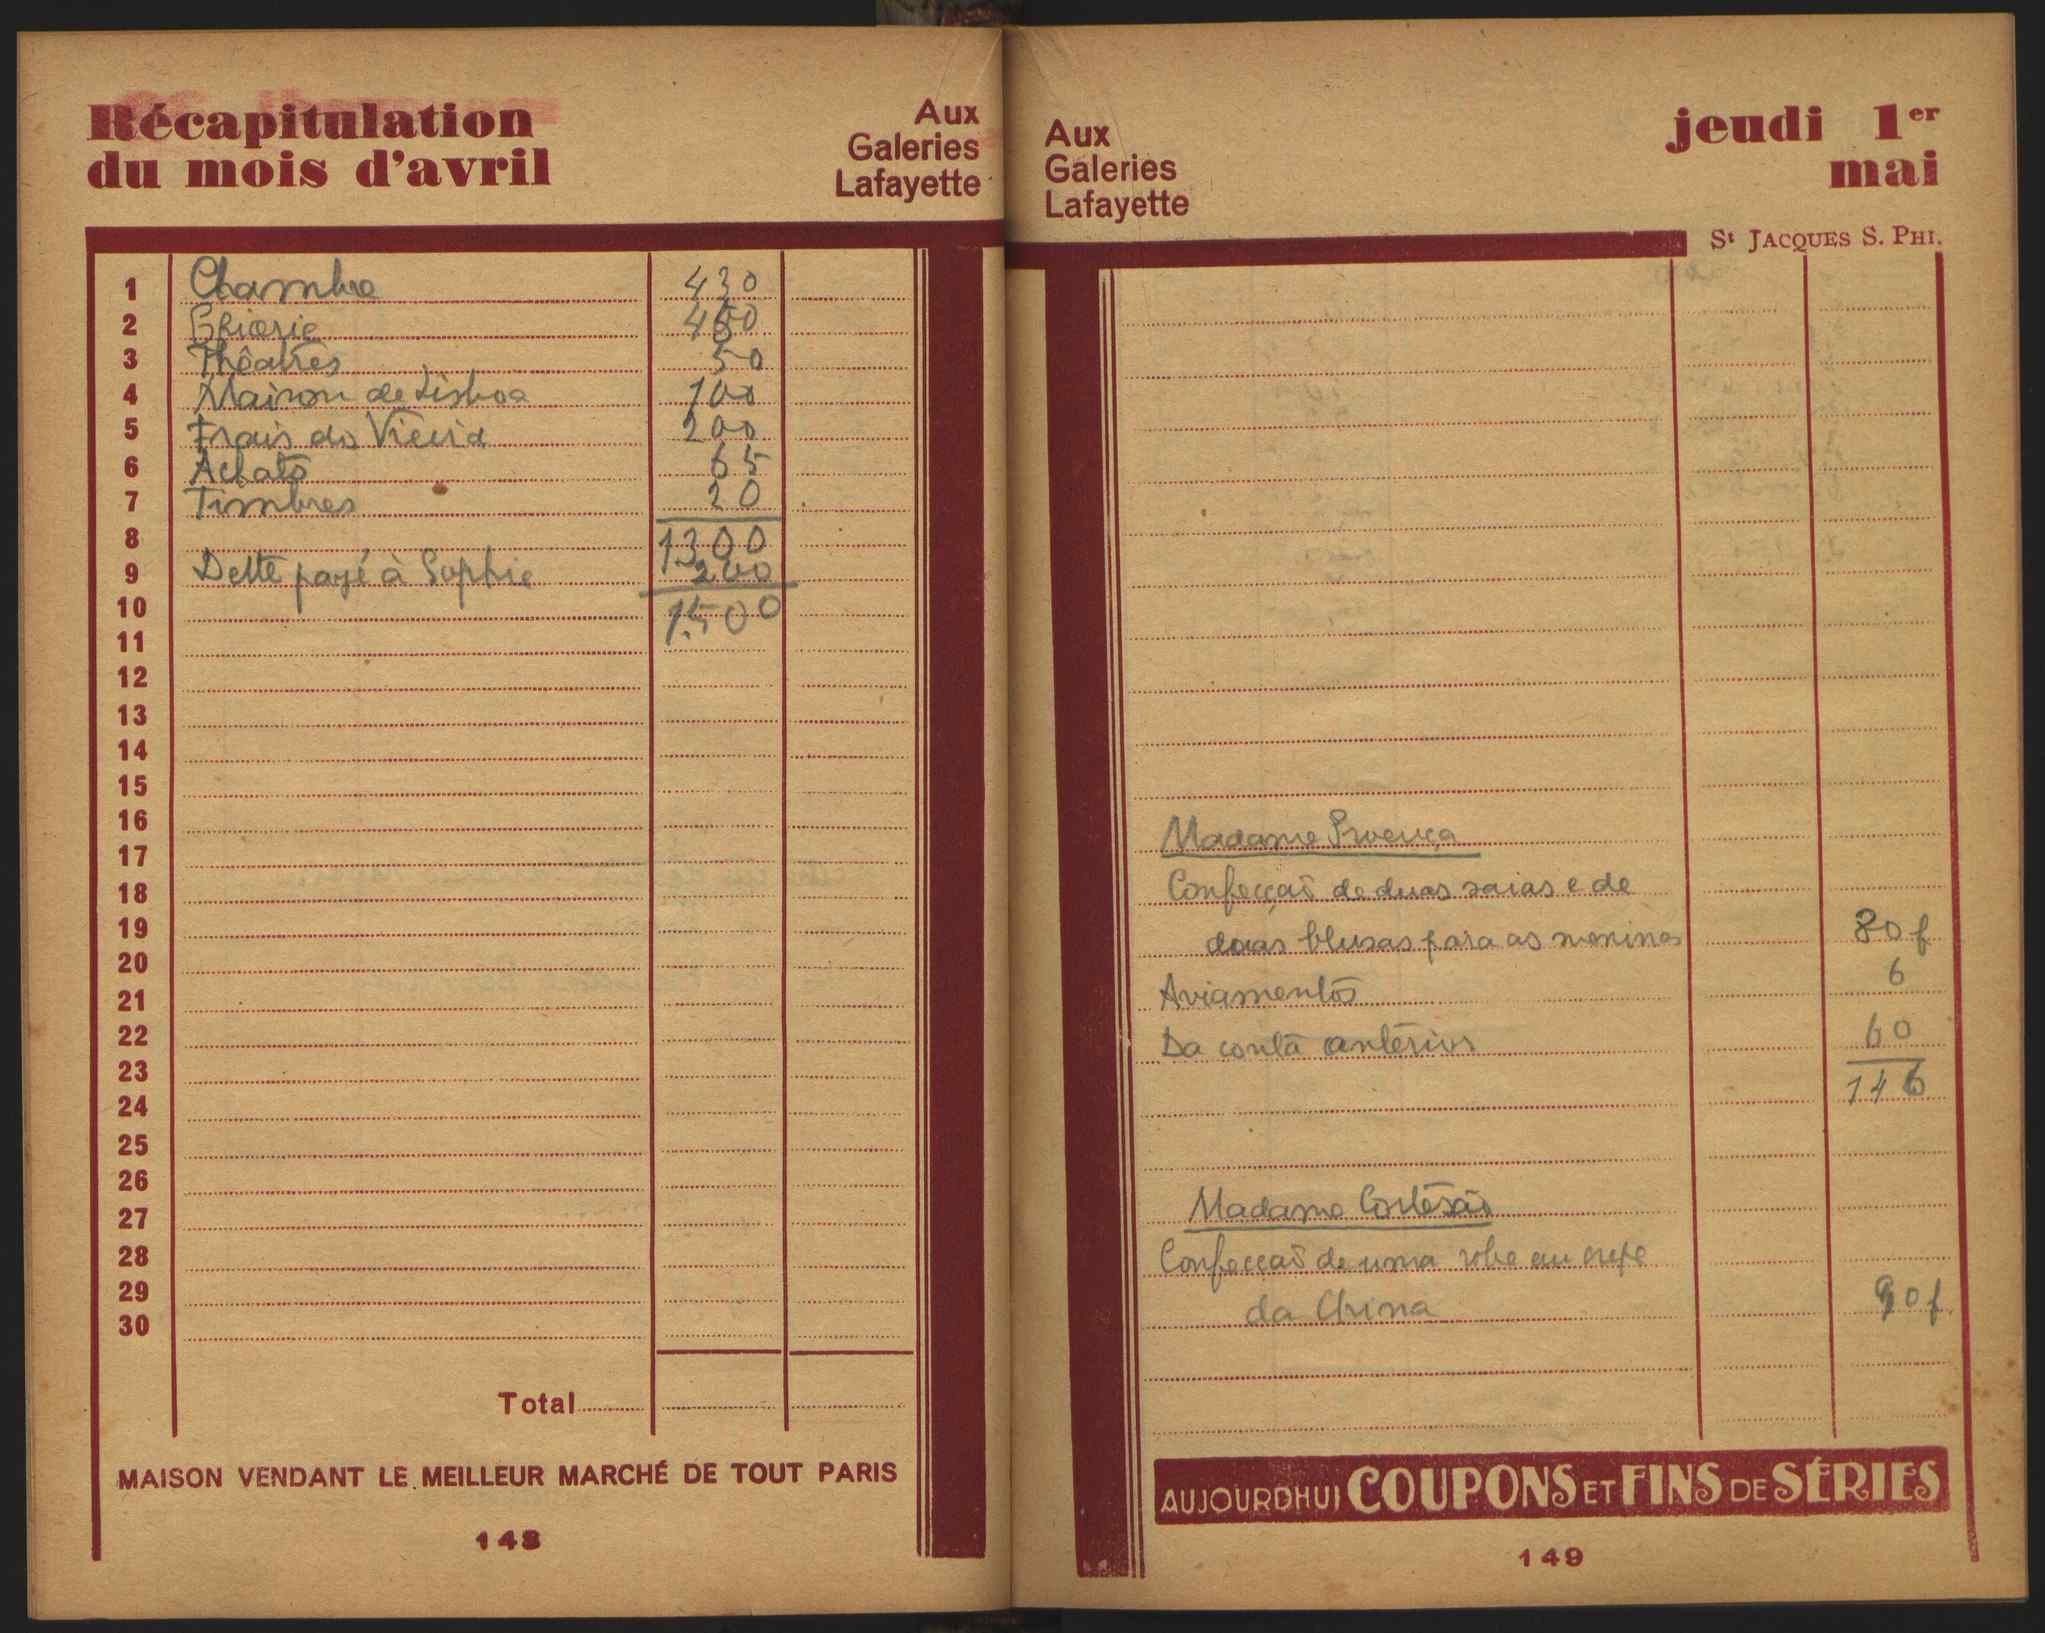 Récapitulation
du mois d'avril
Aux
Galeries
Lafayette
1 Chambre 430
2 Epicerie
3 Théatres 50
4 Maison de Lisboa 100
5 Frais do Vieira 200
6 Achats 65
7 Timbres 20
8 1300
9 Dette payé à Sophie 200
10 1.500
11
12
13
14
15
16
17
18
19
20
21
22
23
24
25
26
27
28
29
30
Total
MAISON VENDANT LE MEILLEUR MARCHÉ DE TOUT PARIS
148
Aux
Galeries
Lafayette
jeudi 1er
mai
St JACQUES S. PHI.
Madame Proença
Confecção de duas saias e de
duas blusas para as meninas 80 f
Aviamentos 6
Da conta anterior 60
146
Madame Cortesão
Confecção de uma robe en crepe
da China 90 f
AUJOURDHUI COUPONS ET FINS DE SÉRIES
149